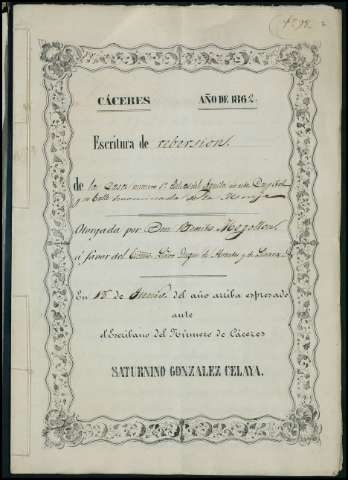 CÁCERES AÑO DE 1862.
Escritura de rebersion
de la Casa numero en esta Capital
y su Calle denominada de la Monja
Otorgada por Don Benito Mogollon
á favor del Excmo. Señor Duque de Abrantes y de Linares
En 15 de Junio del año arriba espresado
ante
el Escribano del Número de Cáceres
SATURNINO GONZALEZ CELAYA.